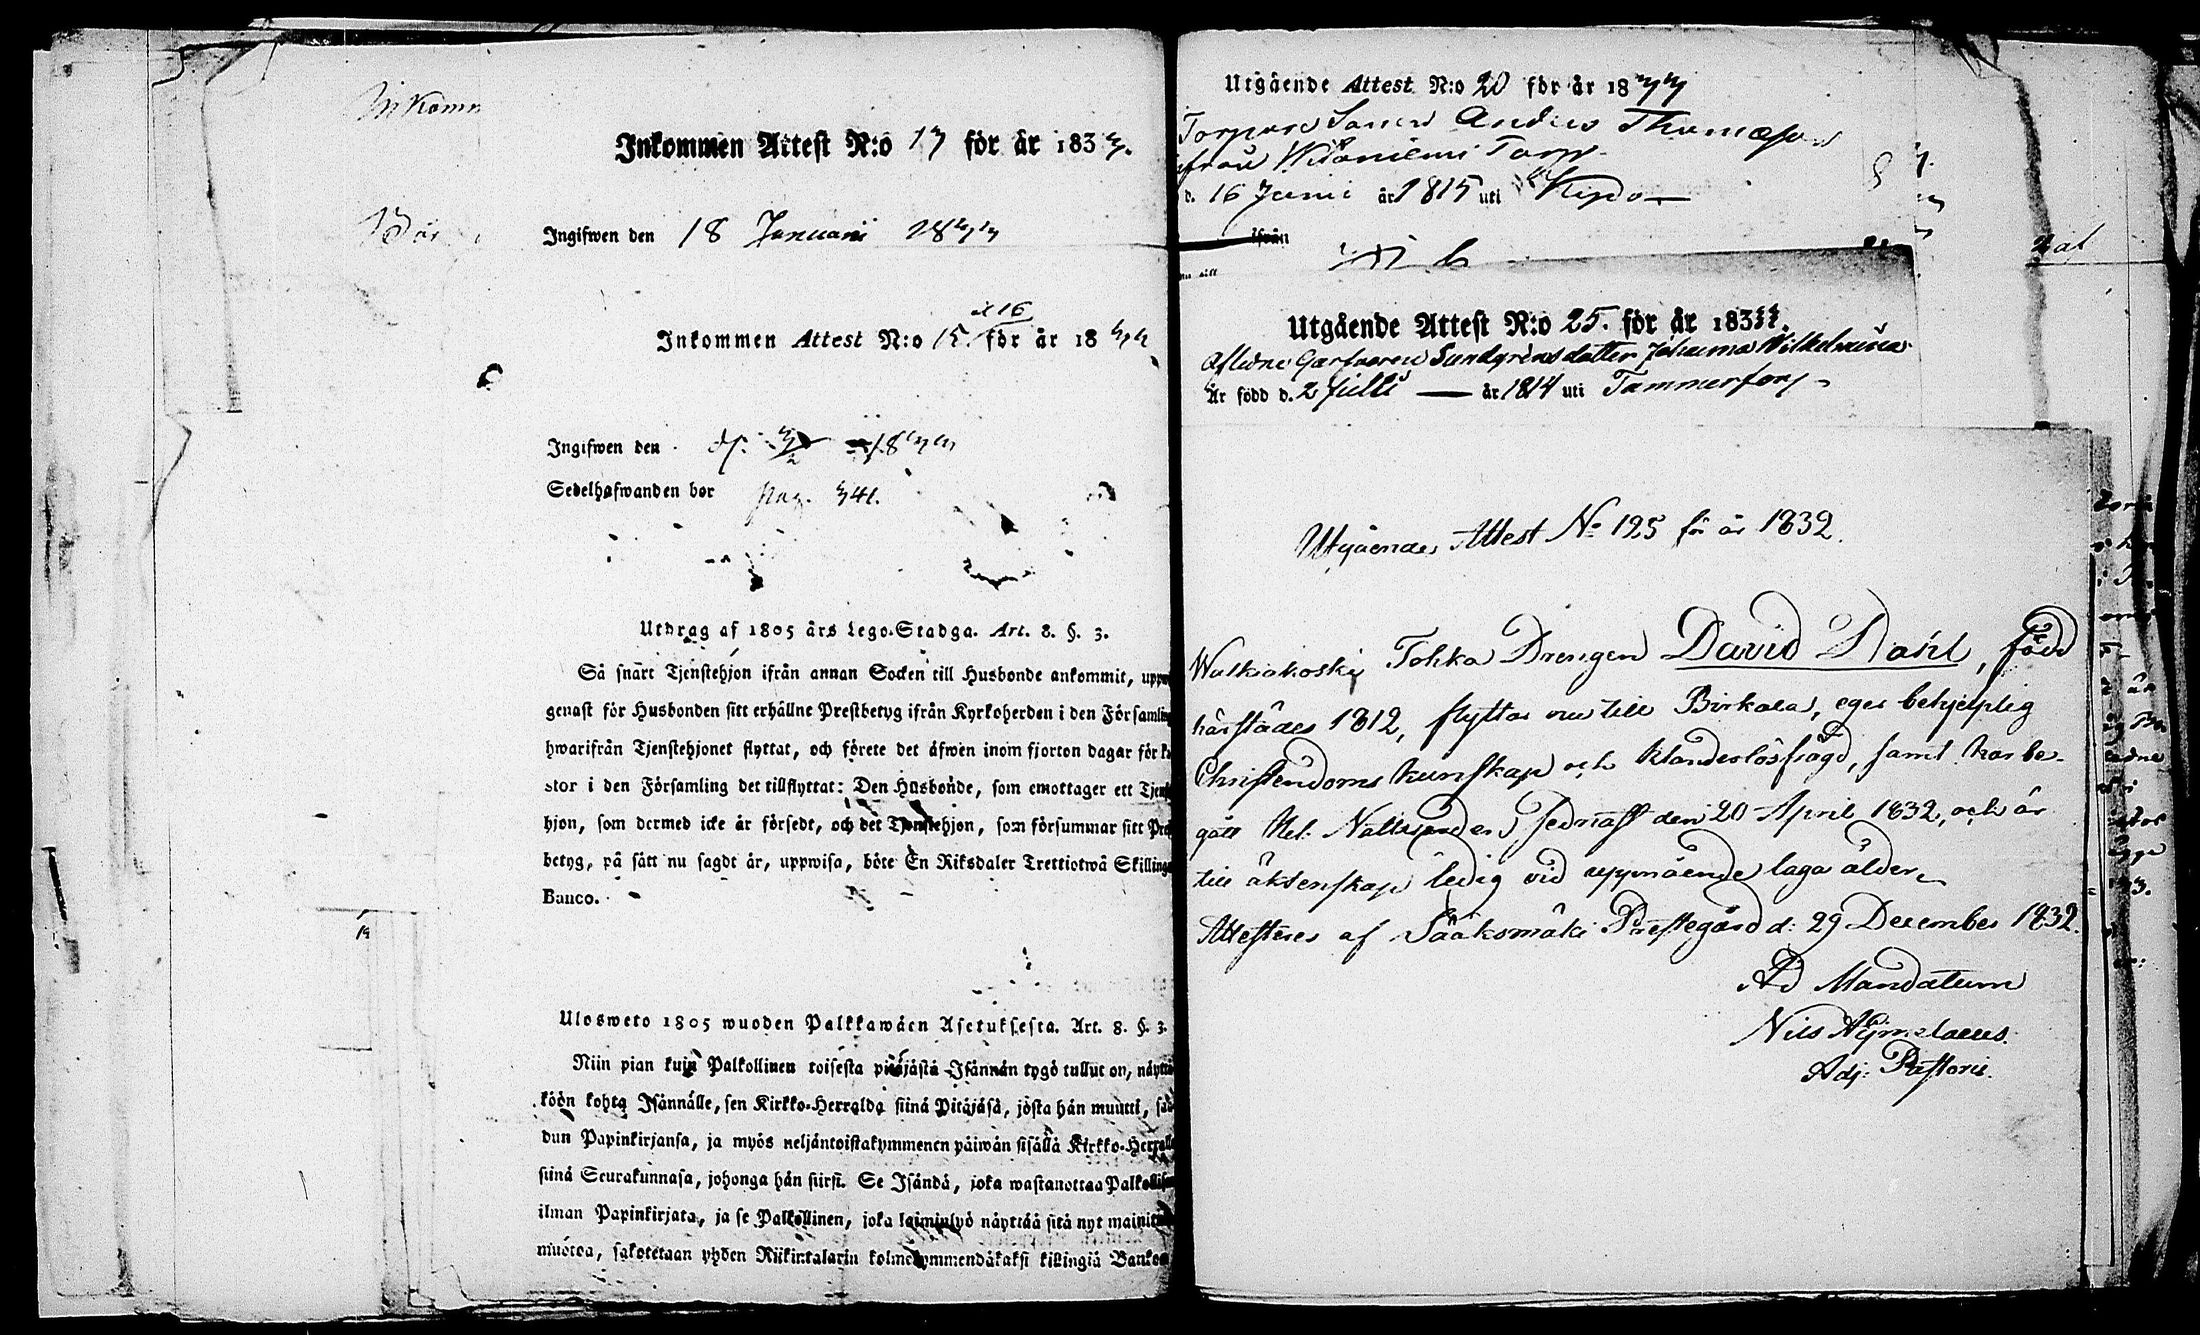 Inkom
Inkommen Attest N:o 17 för år 1833.
Ingifwen den 18 Januarii 1833
Inkommen Attest N:o 15. et 16 för år 1833
Ingifwen den 1833
Sedelhafwanden bor pag. 341.
Utdrag af 1805 års Lego-Stadga. Art. 8. §. 3.
Så snårt Tjenstehjon ifrån annan Socken till Husbonde ankommit, upp
genast för Husbonden sitt erhållne Prestbetyg ifrån Kyrkoherden i den Församlin
hwarifrån Tjenstehjonet flyttat, och förete det åfwen inom fjorton dagar för
stor i den Församling det tillflyttat: Den Husbonde, som emottager ett Tjen
hjon, som dermed icke år försedt, och det Tjenstehjon, som försummar sitt Pre
betyg, på sått nu sagdt år, uppwisa, böte En Riksdaler Trettiotwå Skilling
Banco.
Ulosweto 1805 wuoden Palkkawåen Asetuksesta. Art. 8. §. 3.
Niin pian kuin Palkollinen toisesta pitåjåstå Isånnån tygö tullut on, nåyttå
köön kohta Isånnålle, sen Kirkko-Herralda siinå Pitåjåså, josta hån muutti, saa
dun Papinkirjansa, ja myös neljåntoistakymmenen påiwån sisållå Kirkko-Herralle
siinå Seurakunnasa, johonga hån siirsi. Se Isåndå, joka wastanottaa Palkollisen
ilman Papinkirjata, ja se Palkollinen, joka laiminlyö nåyttåå sitå nyt mainitun
muotoa, sakotetaan yhden Riikintalarin kolmekymmendåkaksi killingiå Bankos
Utgående Attest N:o 20 för år 1833
Torpare Sonen Anders Thomasson
ifrån Torp
d. 16 Junii år 1815 uti
ifrån
Utgående Attest N:o 25. för år 1833.
Aflidne Garfvaren Sundgréns dotter Johanna Wilhelmina
Är född d. 2 Julii år 1814 uti Tammerfors
Utgående Attest No 125 för år 1832.
Walkiakoski Tohka Drengen David Dahl, född
härstädes 1812, flyttar nu till Birkala, eger behjelplig
Christendoms kunskap och klanderlös frägd, samt har be-
gått Hel: Nattvarden sednast den 20 April 1832, och är
till äktenskap ledig vid uppnående laga ålder.
Attesteres af Sääksmäki Prestegård d: 29 December 1832.
Ad Mandatum
Nils
Adj: Pastoris.